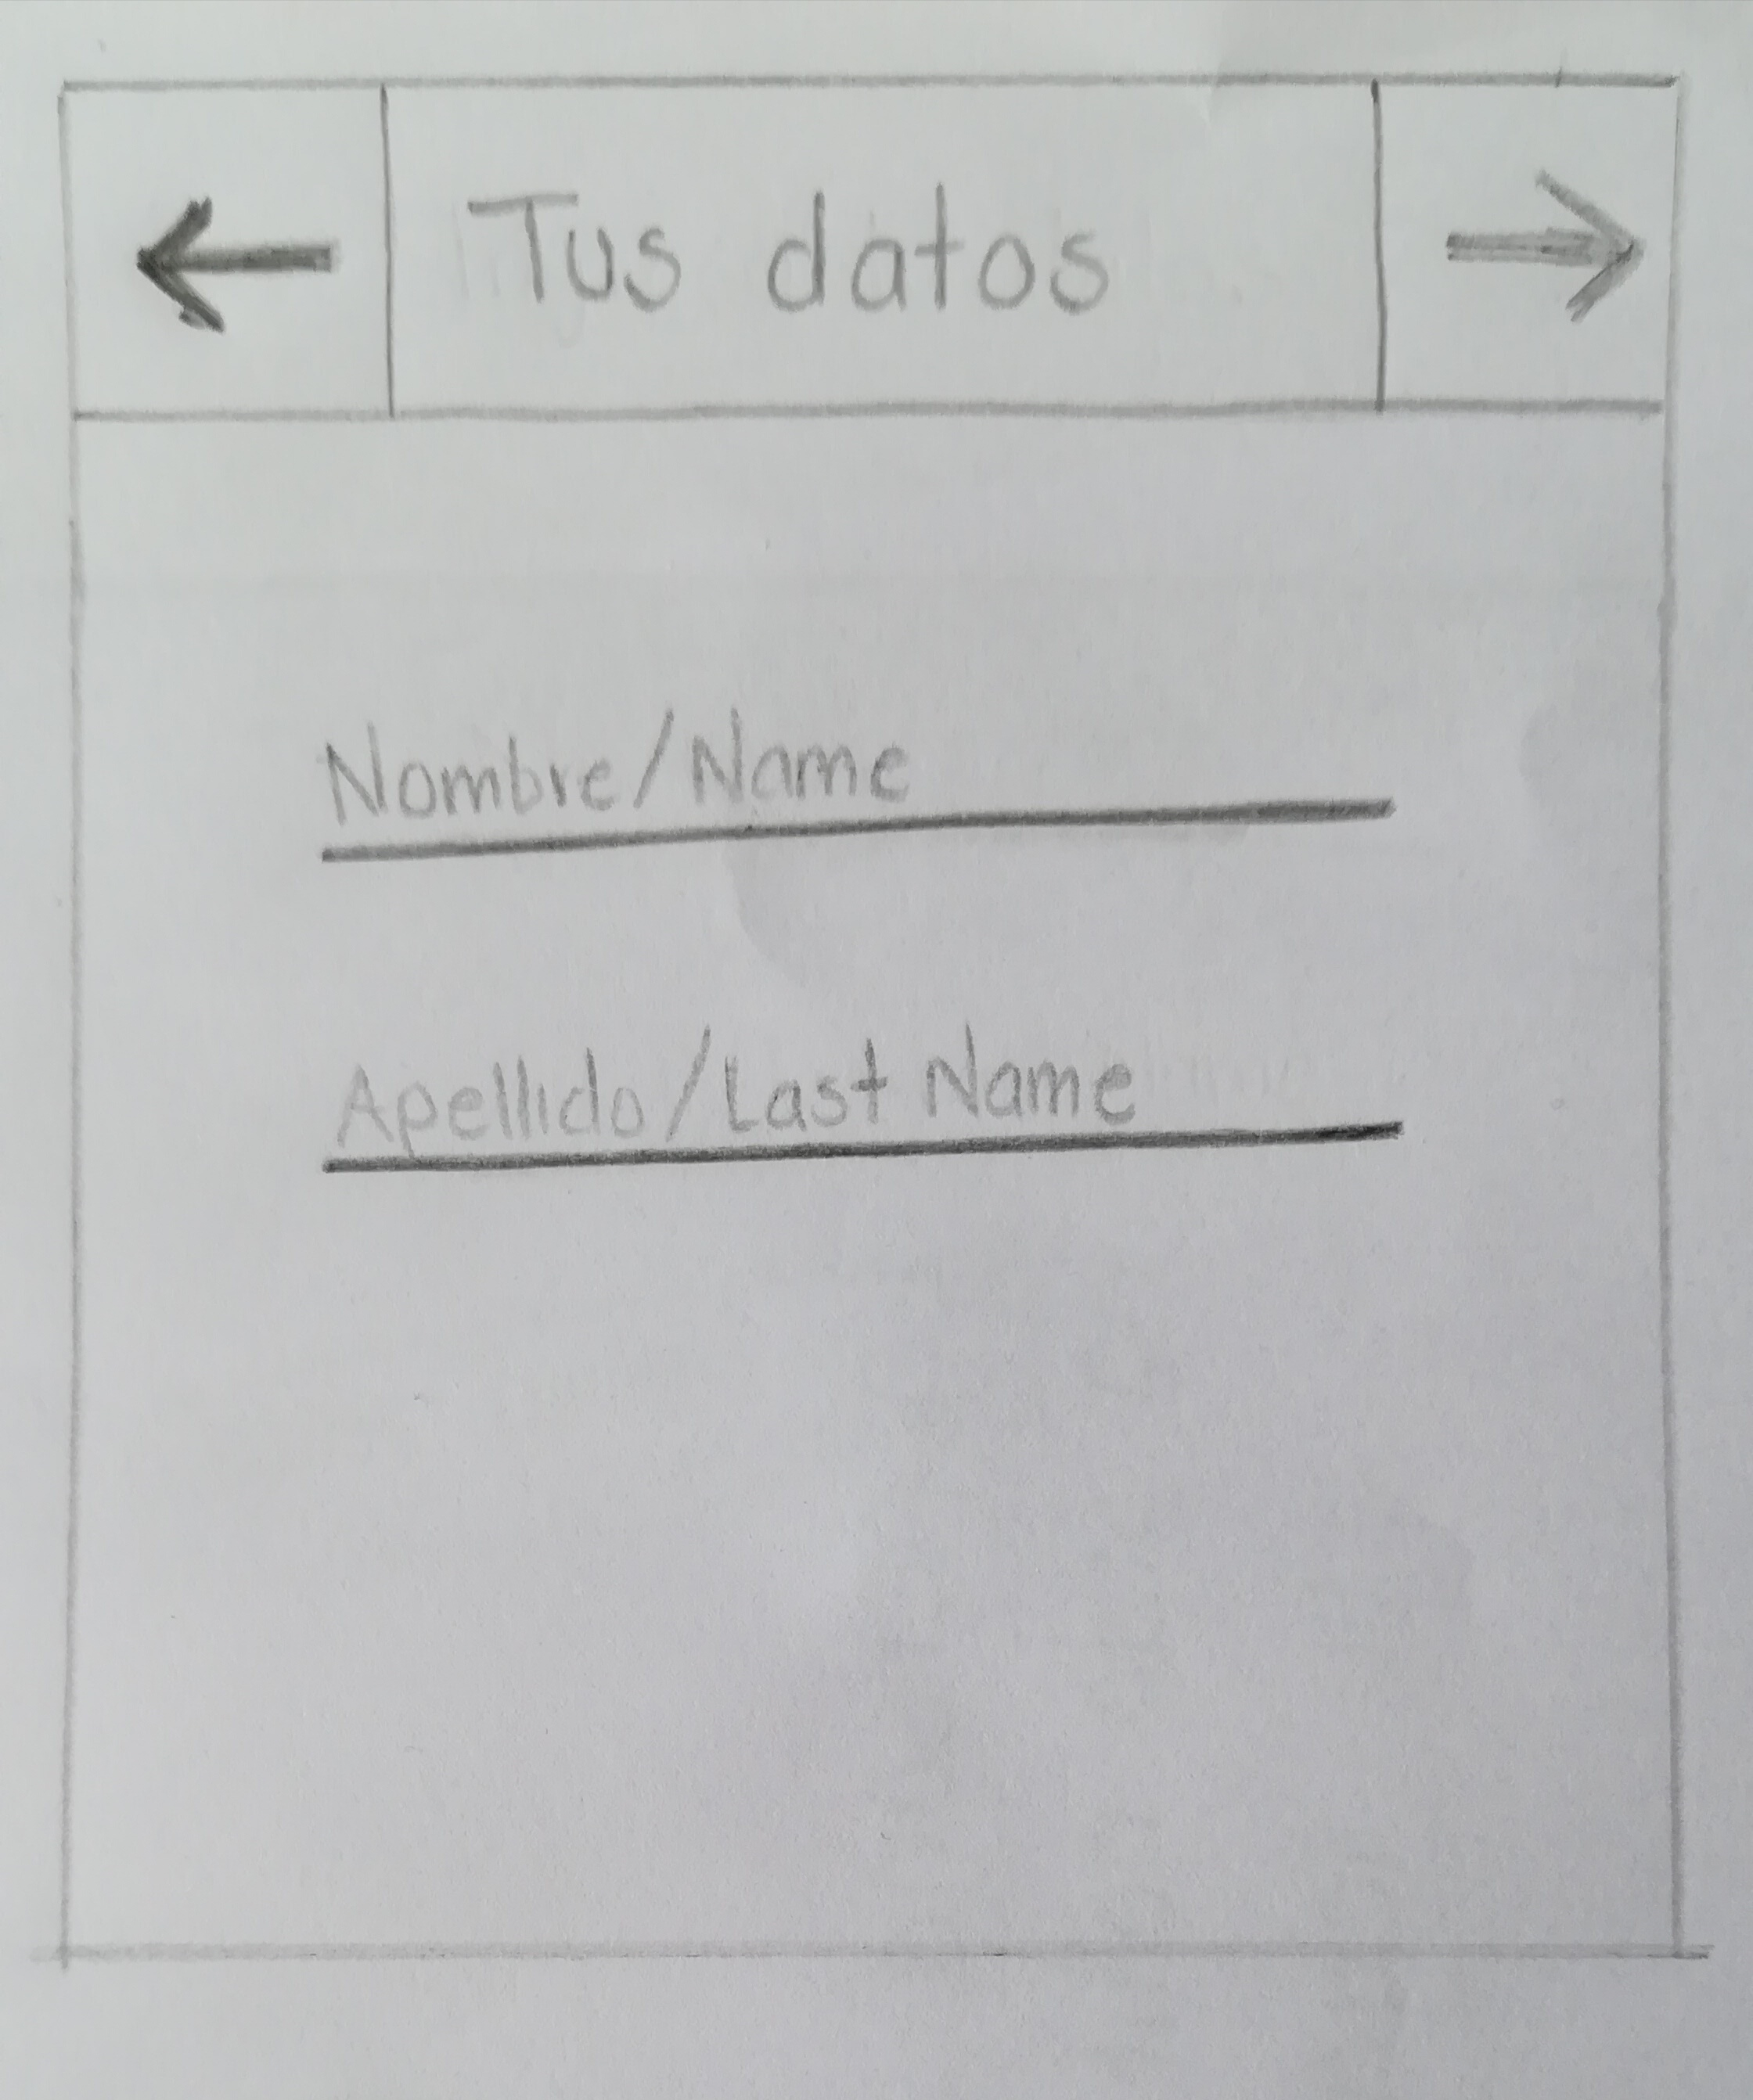 Tus datos
Nombre/Name
Apellido/Last Name